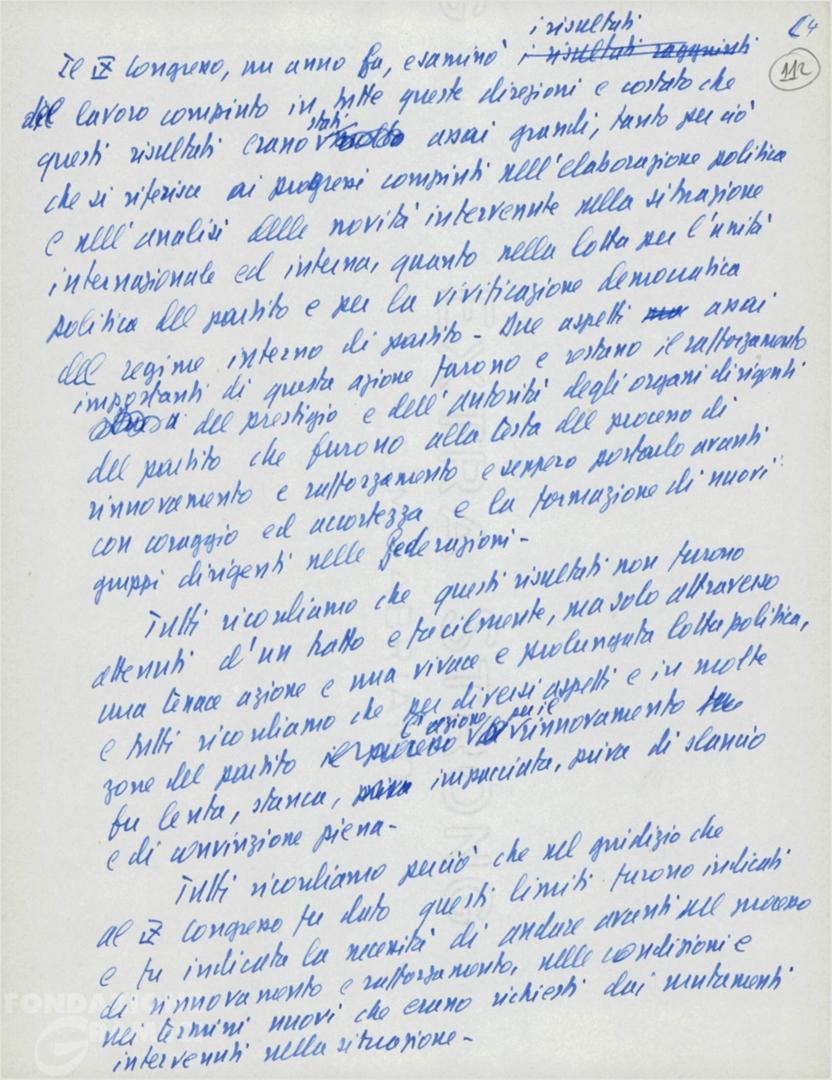 64
112
i risultati
Il IX Congresso, un anno fa, esaminò i risultati raggiunti
del lavoro compiuto in tutte queste direzioni e costatò che
questi risultati erano stati assai grandi, tanto per ciò
che si riferisce ai progressi compiuti nell'elaborazione politica
e nell'analisi delle novità intervenute nella situazione
internazionale ed interna, quanto nella lotta per l'unità
politica del partito e per la vivificazione democratica
del regime interno di partito - Due aspetti assai
importanti di questa azione furono e restano il rafforzamento
del prestigio e dell'autorità degli organi dirigenti
del partito che furono alla testa del processo di
rinnovamento e rafforzamento e seppero portarlo avanti
con coraggio ed accortezza e la formazione di nuovi
gruppi dirigenti nelle Federazioni -
Tutti ricordiamo che questi risultati non furono
ottenuti d'un tratto e facilmente, ma solo attraverso
una tenace azione e una vivace e prolungata lotta politica,
e tutti ricordiamo che per diversi aspetti e in molte
zone del partito l'azione per il rinnovamento
fu lenta, stanca, impacciata, priva di slancio
e di convinzione piena -
Tutti ricordiamo perciò che nel giudizio che
al IX Congresso fu dato questi limiti furono indicati
e fu indicata la necessità di andare avanti nel processo
di rinnovamento e rafforzamento, nelle condizioni e
nei termini nuovi che erano richiesti dai mutamenti
intervenuti nella situazione -
FONDAZIONE
GRAMSCI